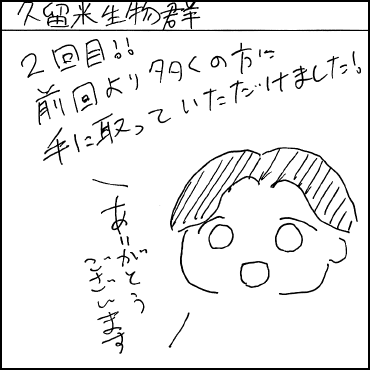 久留米生物群
2回目!!
前回より多くの方に
手に取っていただけました!
ありがとう
ございます